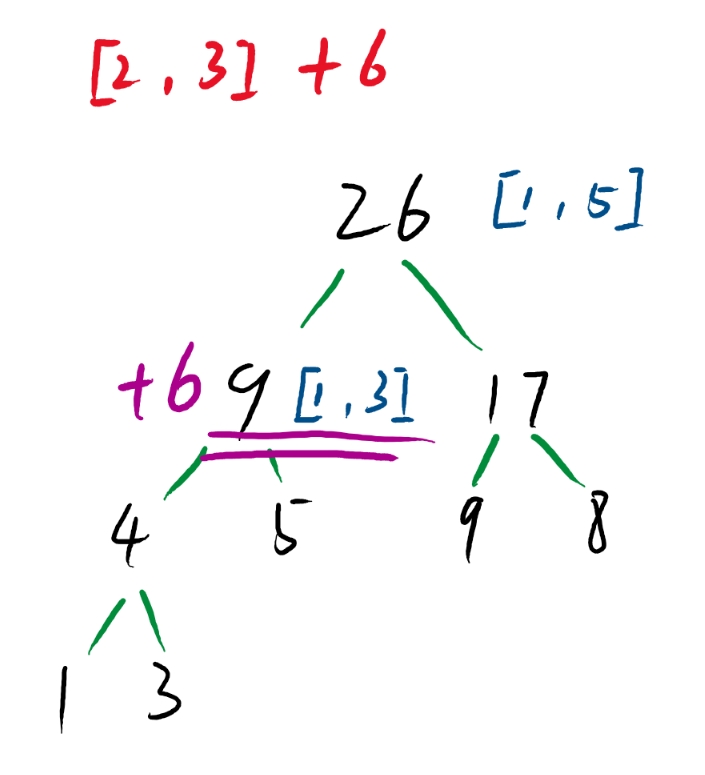 [2,3] +6
26 [1,5]
+6 9 [1,3] 17
4 5 9 8
1 3